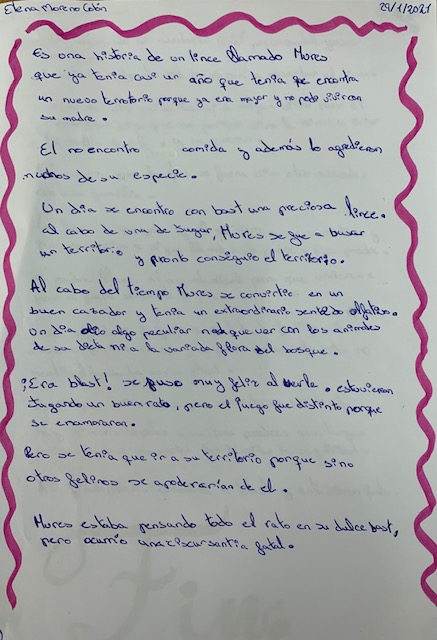 Elena Moreno Colón
29/1/2021
Es una historia de un lince llamado Mures
que ya tenia casi un año que tenia que encontra
un nuevo territorio porque ya era mayor y no podo vivir con
su madre.
El no encontro comida y además lo agredieron
muchos de su especie.
Un dia se encontro con bast una preciosa lince.
al cabo de una de Jugar, Mures se fue a buscar
un territorio y pronto consiguio el territorio.
Al cabo del tiempo Mures se convirtio en un
buen cazador y tenia un extraordinario sentido olfativo.
Un dia olio algo peculiar nada que ver con los animales
de su dieta ni a la variada flora del bosque.
¡Era blast! se puso muy feliz al verla. estuvieron
Jugando un buen rato, pero el juego fue distinto porque
se enamoraron.
Pero se tenia que ir a su territorio porque sino
otros felinos se apoderarian de el.
Mures estaba pensando todo el rato en su dulce bast,
pero ocurrio una fatal.